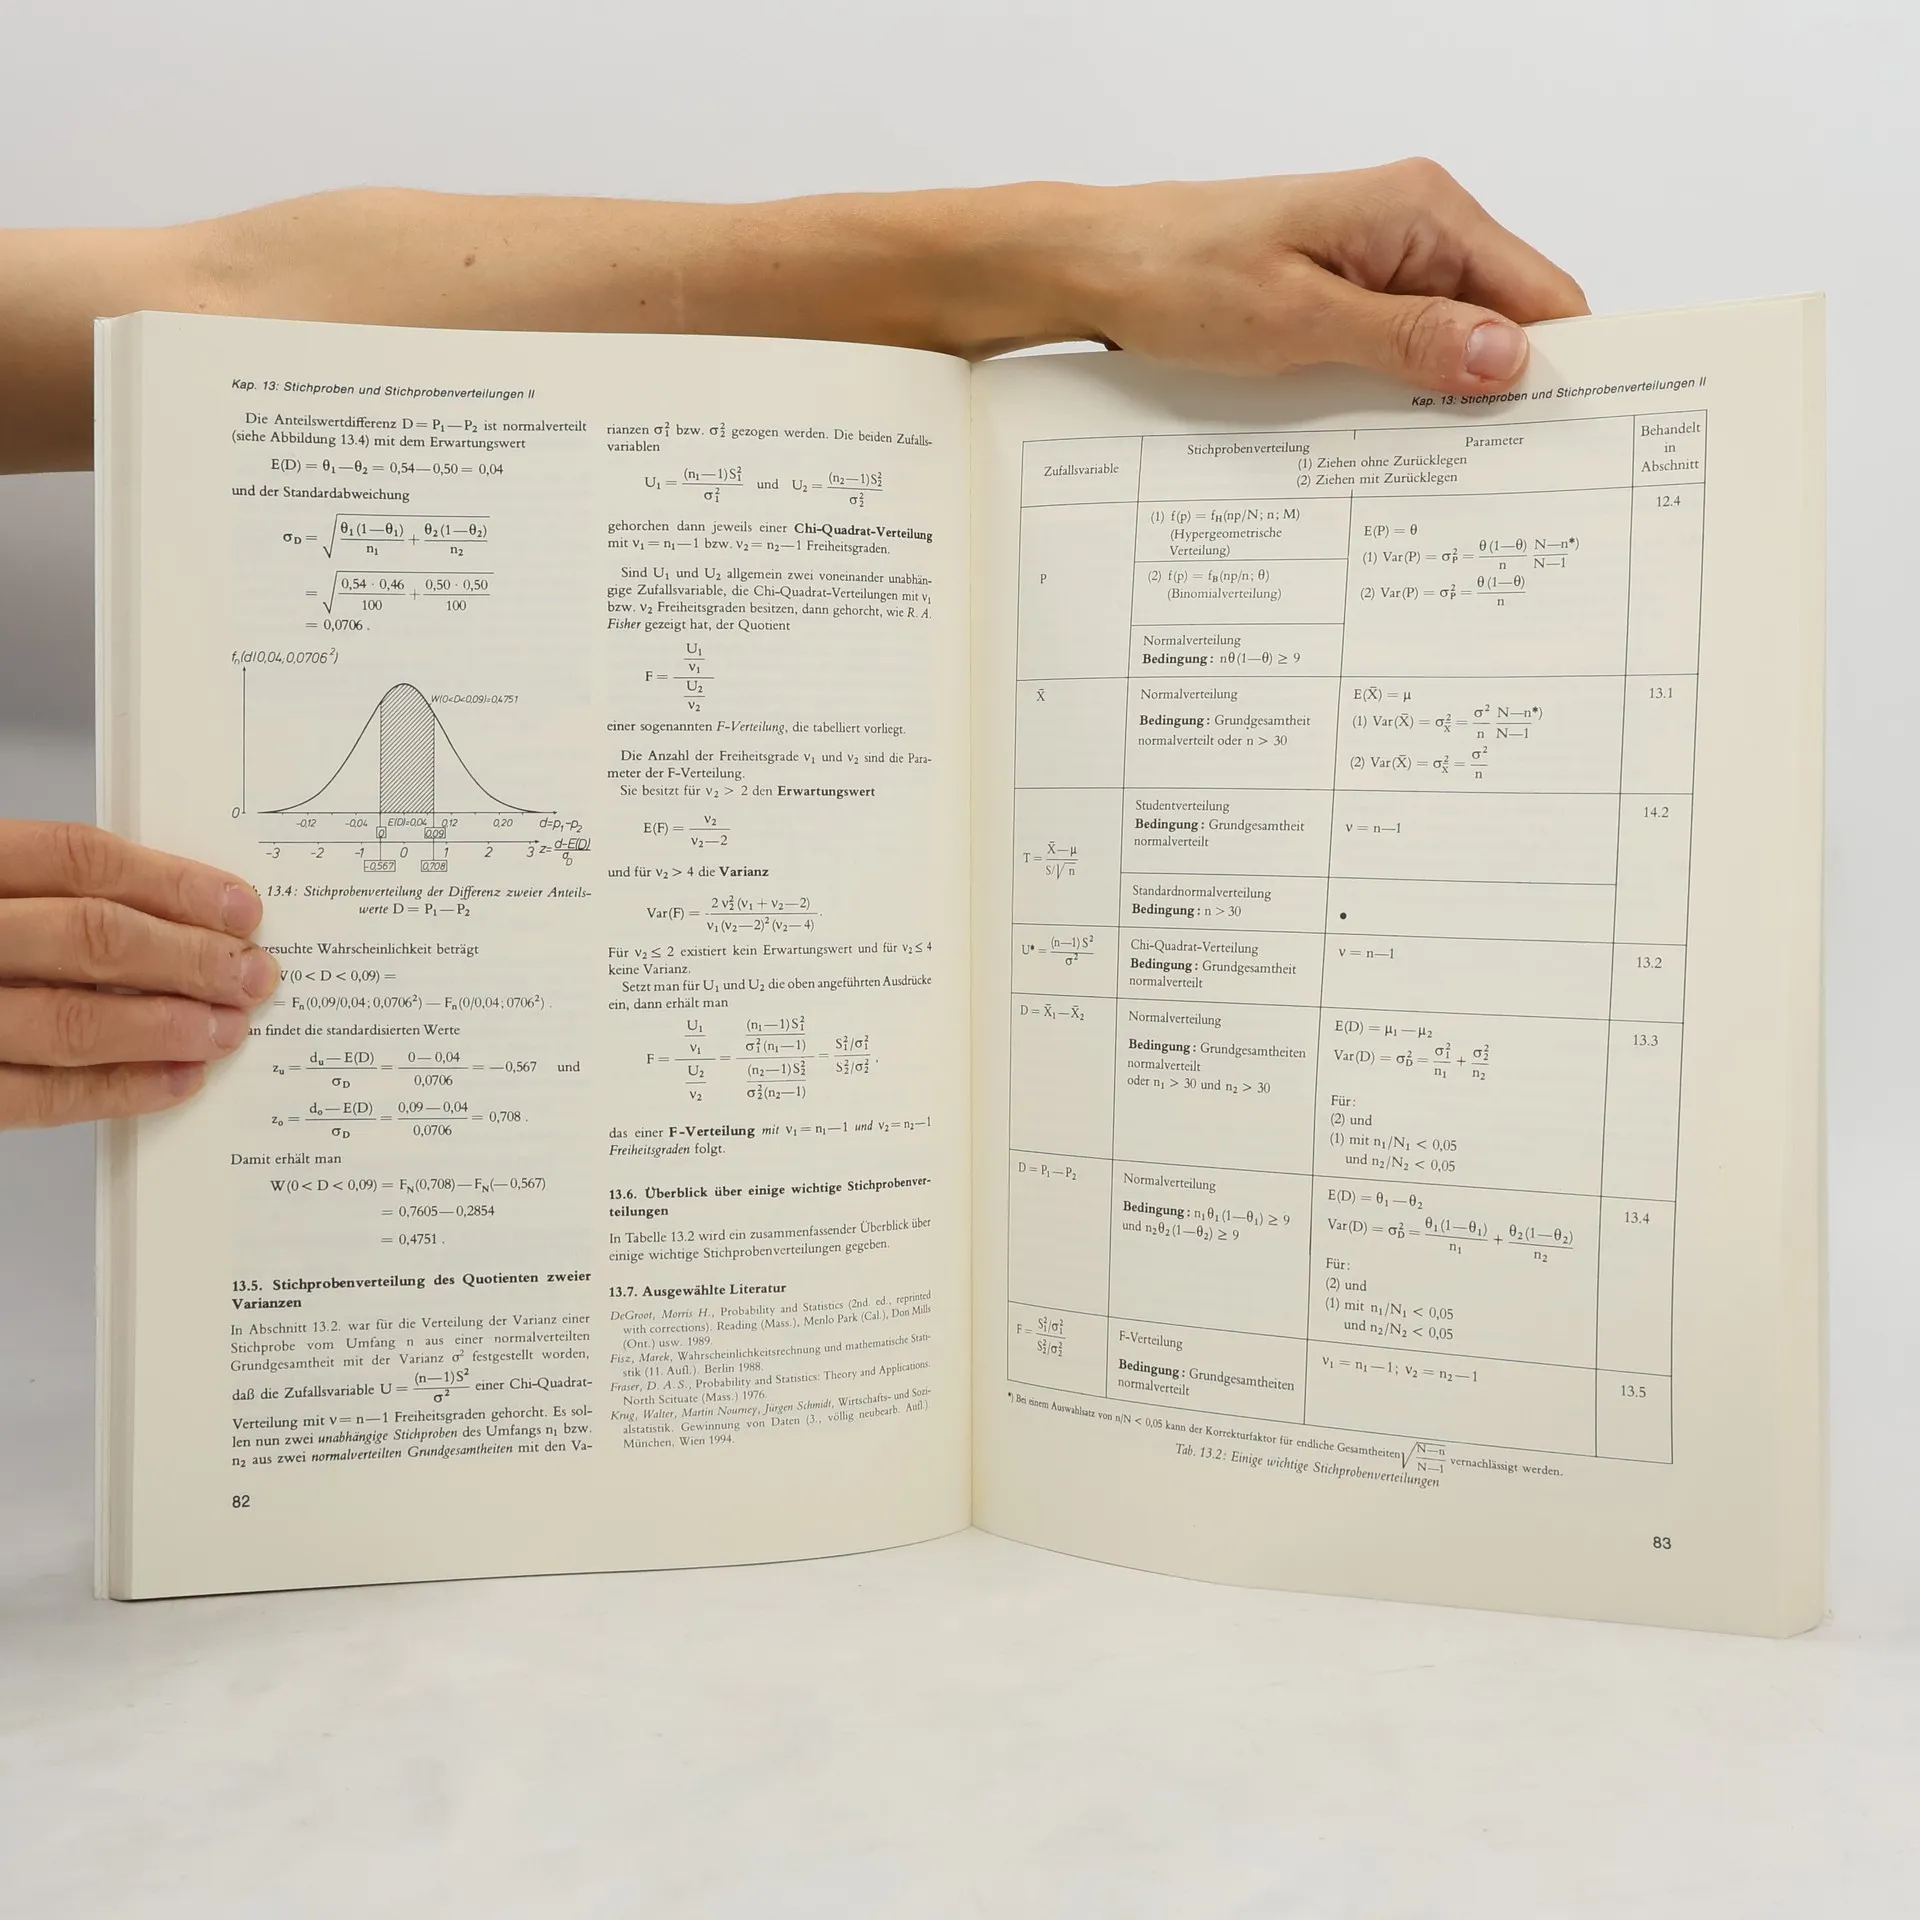 Kap. 13: Stichproben und Stichprobenverteilungen II
Die Anteilswertdifferenz D = P₁—P₂ ist normalverteilt
(siehe Abbildung 13.4) mit dem Erwartungswert
E(D) = θ₁—θ₂ = 0,54—0,50 = 0,04
und der Standardabweichung
σ_D = √(θ₁(1—θ₁)/n₁ + θ₂(1—θ₂)/n₂)
= √(0,54 · 0,46/100 + 0,50 · 0,50/100)
= 0,0706 .
fₙ(d|0,04; 0,0706²)
W(0<D<0,09)=0,4751
0
-0,12 -0,04 E(D)=0,04 0,12 0,20 d=p₁-p₂
0 0,09
-3 -2 -1 0 1 2 3 z=(d-E(D))/σ_D
-0,567 0,708
13.4: Stichprobenverteilung der Differenz zweier Anteils-
werte D = P₁—P₂
gesuchte Wahrscheinlichkeit beträgt
W(0 < D < 0,09) =
= Fₙ(0,09/0,04; 0,0706²) — Fₙ(0/0,04; 0706²) .
an findet die standardisierten Werte
zᵤ = (dᵤ—E(D))/σ_D = (0—0,04)/0,0706 = —0,567 und
zₒ = (dₒ—E(D))/σ_D = (0,09—0,04)/0,0706 = 0,708 .
Damit erhält man
W(0 < D < 0,09) = F_N(0,708)—F_N(—0,567)
= 0,7605—0,2854
= 0,4751 .
13.5. Stichprobenverteilung des Quotienten zweier
Varianzen
In Abschnitt 13.2. war für die Verteilung der Varianz einer
Stichprobe vom Umfang n aus einer normalverteilten
Grundgesamtheit mit der Varianz σ² festgestellt worden,
daß die Zufallsvariable U = (n—1)S²/σ² einer Chi-Quadrat-
Verteilung mit ν = n—1 Freiheitsgraden gehorcht. Es sol-
len nun zwei unabhängige Stichproben des Umfangs n₁ bzw.
n₂ aus zwei normalverteilten Grundgesamtheiten mit den Va-
82
rianzen σ₁² bzw. σ₂² gezogen werden. Die beiden Zufalls-
variablen
U₁ = (n₁—1)S₁²/σ₁² und U₂ = (n₂—1)S₂²/σ₂²
gehorchen dann jeweils einer Chi-Quadrat-Verteilung
mit ν₁ = n₁—1 bzw. ν₂ = n₂—1 Freiheitsgraden.
Sind U₁ und U₂ allgemein zwei voneinander unabhän-
gige Zufallsvariable, die Chi-Quadrat-Verteilungen mit ν₁
bzw. ν₂ Freiheitsgraden besitzen, dann gehorcht, wie R. A.
Fisher gezeigt hat, der Quotient
F = (U₁/ν₁)/(U₂/ν₂)
einer sogenannten F-Verteilung, die tabelliert vorliegt.
Die Anzahl der Freiheitsgrade ν₁ und ν₂ sind die Para-
meter der F-Verteilung.
Sie besitzt für ν₂ > 2 den Erwartungswert
E(F) = ν₂/(ν₂—2)
und für ν₂ > 4 die Varianz
Var(F) = 2 ν₂² (ν₁ + ν₂—2)/(ν₁ (ν₂—2)² (ν₂—4)) .
Für ν₂ ≤ 2 existiert kein Erwartungswert und für ν₂ ≤ 4
keine Varianz.
Setzt man für U₁ und U₂ die oben angeführten Ausdrücke
ein, dann erhält man
F = (U₁/ν₁)/(U₂/ν₂) = ((n₁—1)S₁²/σ₁²(n₁—1))/((n₂—1)S₂²/σ₂²(n₂—1)) = (S₁²/σ₁²)/(S₂²/σ₂²) ,
das einer F-Verteilung mit ν₁ = n₁—1 und ν₂ = n₂—1
Freiheitsgraden folgt.
13.6. Überblick über einige wichtige Stichprobenver-
teilungen
In Tabelle 13.2 wird ein zusammenfassender Überblick über
einige wichtige Stichprobenverteilungen gegeben.
13.7. Ausgewählte Literatur
DeGroot, Morris H., Probability and Statistics (2nd. ed., reprinted
with corrections). Reading (Mass.), Menlo Park (Cal.), Don Mills
(Ont.) usw. 1989.
Fisz, Marek, Wahrscheinlichkeitsrechnung und mathematische Stati-
stik (11. Aufl.). Berlin 1988.
Fraser, D. A. S., Probability and Statistics: Theory and Applications.
North Scituate (Mass.) 1976.
Krug, Walter, Martin Nourney, Jürgen Schmidt, Wirtschafts- und Sozi-
alstatistik. Gewinnung von Daten (3., völlig neubearb. Aufl.).
München, Wien 1994.
Kap. 13: Stichproben und Stichprobenverteilungen II
Zufallsvariable
Stichprobenverteilung Parameter
(1) Ziehen ohne Zurücklegen
(2) Ziehen mit Zurücklegen
Behandelt
in
Abschnitt
P
(1) f(p) = f_H(np/N; n; M)
(Hypergeometrische
Verteilung)
(2) f(p) = f_B(np/n; θ)
(Binomialverteilung)
Normalverteilung
Bedingung: nθ(1—θ) ≥ 9
E(P) = θ
(1) Var(P) = σ_P² = θ(1—θ)/n (N—n*))/(N—1)
(2) Var(P) = σ_P² = θ(1—θ)/n
12.4
X̄
Normalverteilung
Bedingung: Grundgesamtheit
normalverteilt oder n > 30
E(X̄) = μ
(1) Var(X̄) = σ_X̄² = σ²/n (N—n*))/(N—1)
(2) Var(X̄) = σ_X̄² = σ²/n
13.1
T = (X̄—μ)/(S/√n)
Studentverteilung
Bedingung: Grundgesamtheit
normalverteilt
ν = n—1
14.2
Standardnormalverteilung
Bedingung: n > 30
•
U* = (n—1)S²/σ²
Chi-Quadrat-Verteilung
Bedingung: Grundgesamtheit
normalverteilt
ν = n—1
13.2
D = X̄₁—X̄₂
Normalverteilung
Bedingung: Grundgesamtheiten
normalverteilt
oder n₁ > 30 und n₂ > 30
E(D) = μ₁—μ₂
Var(D) = σ_D² = σ₁²/n₁ + σ₂²/n₂
Für:
(2) und
(1) mit n₁/N₁ < 0,05
und n₂/N₂ < 0,05
13.3
D = P₁—P₂
Normalverteilung
Bedingung: n₁θ₁(1—θ₁) ≥ 9
und n₂θ₂(1—θ₂) ≥ 9
E(D) = θ₁—θ₂
Var(D) = σ_D² = θ₁(1—θ₁)/n₁ + θ₂(1—θ₂)/n₂
Für:
(2) und
(1) mit n₁/N₁ < 0,05
und n₂/N₂ < 0,05
13.4
F = (S₁²/σ₁²)/(S₂²/σ₂²)
F-Verteilung
Bedingung: Grundgesamtheiten
normalverteilt
ν₁ = n₁—1; ν₂ = n₂—1
13.5
*) Bei einem Auswahlsatz von n/N < 0,05 kann der Korrekturfaktor für endliche Gesamtheiten √((N—n)/(N—1)) vernachlässigt werden.
Tab. 13.2: Einige wichtige Stichprobenverteilungen
83